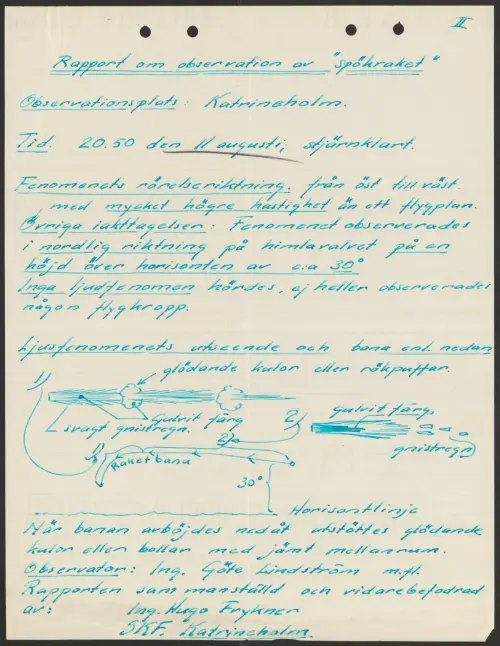 II
Rapport om observation av "spökraket"
Observationsplats: Katrineholm.
Tid. 20.50 den 11 augusti, stjärnklart.
Fenomenets rörelseriktning: från öst till väst
med mycket högre hastighet än ett flygplan.
Övriga iakttagelser: Fenomenet observerades
i nordlig riktning på himlavalvet på en
höjd över horisonten av c:a 30°
Inga ljudfenomen hördes, ej heller observerades
någon flygkropp.
Ljusfenomenets utseende och bana enl. nedan
glödande kulor eller rökpuffar.
1)
Gulvit färg
svagt gnistregn.
2)
gulvit färg,
gnistregn
2)
1)
Raket bana
30°
Horisontlinje
När banan avböjdes nedåt utstöttes glödande
kulor eller bollar med jämt mellanrum.
Observatör: Ing. Göte Lindström m.fl.
Rapporten sammanställd och vidarebefodrad
av: Ing. Hugo Frykner
SKF. Katrineholm.